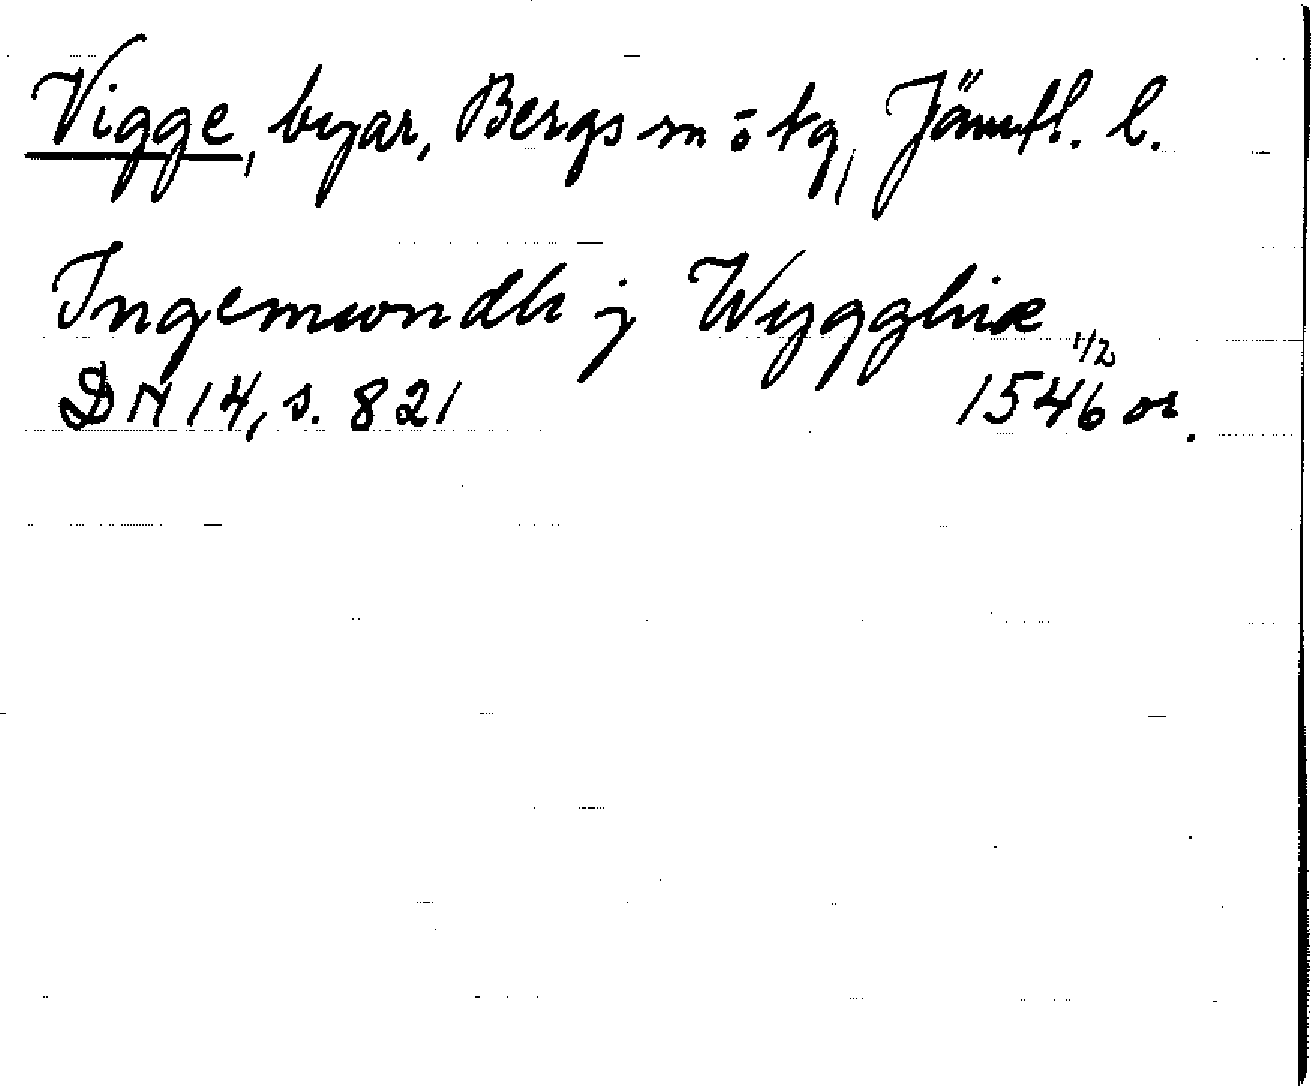 Vigge, byar, Bergs sn ö tg, Jämtl. l.
Ingemwndh j Wygghiæ
DN 14, s. 821 1546 1/2 or.